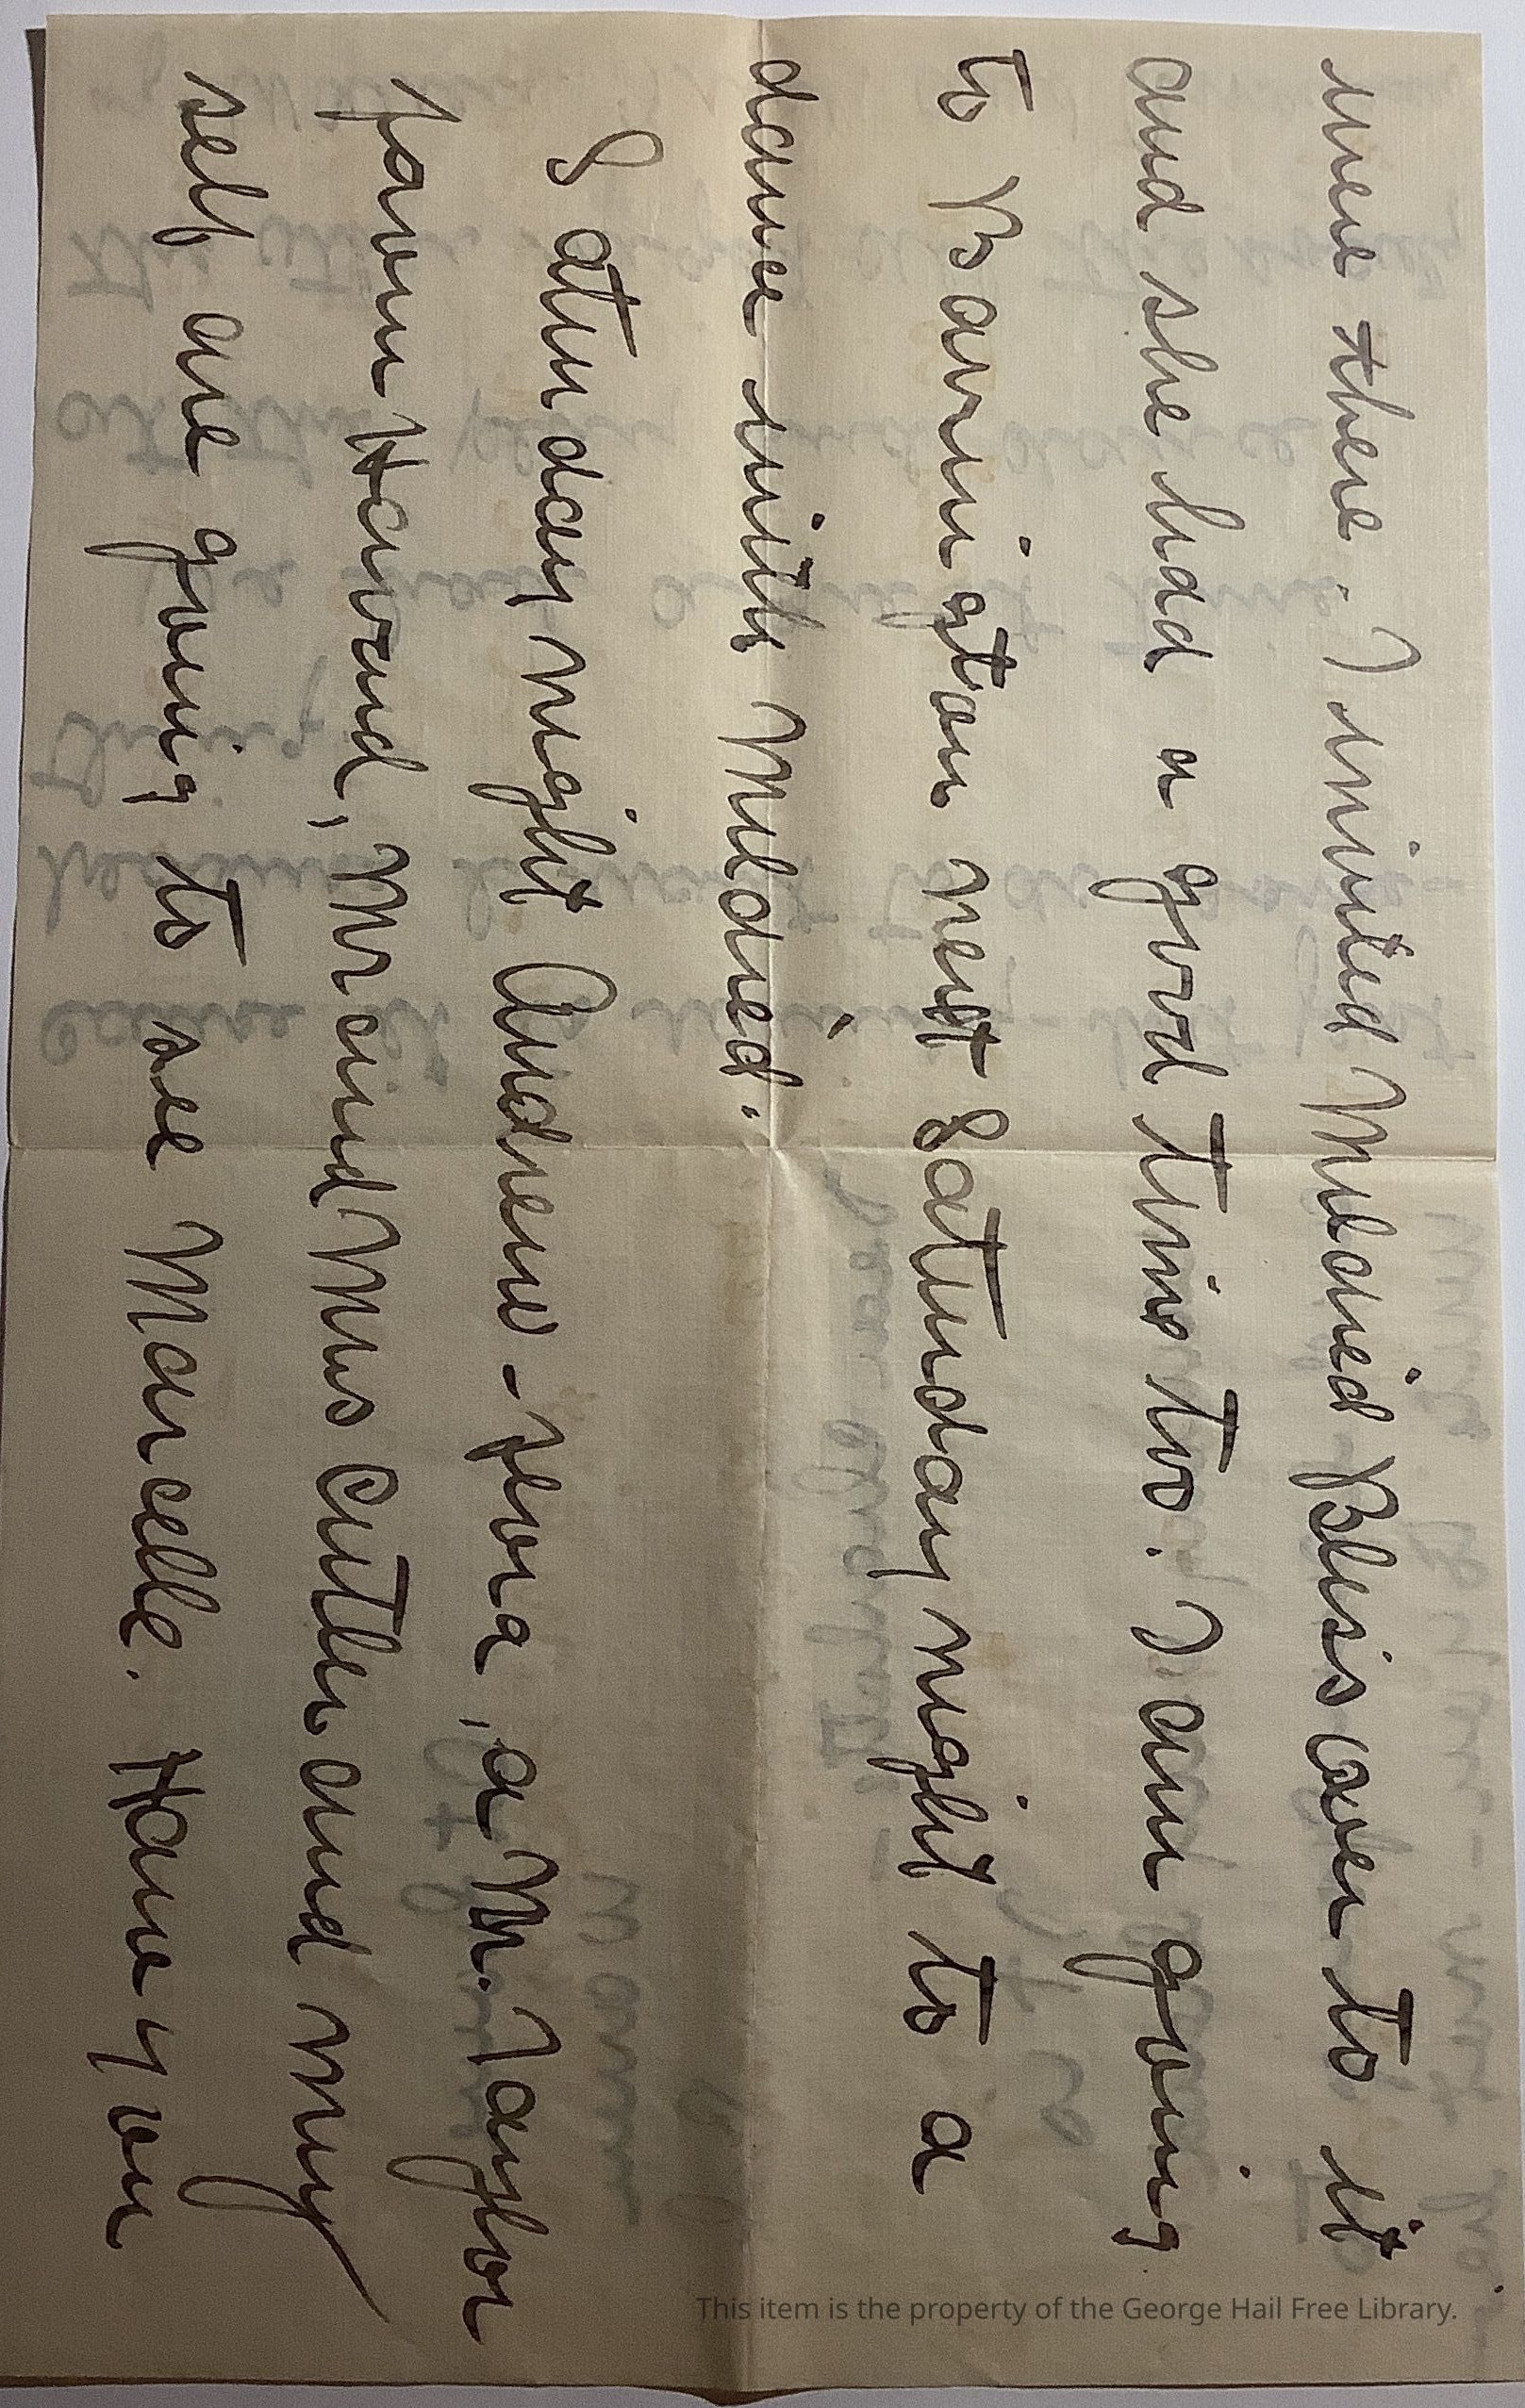 were there. I invited Mildred Bliss over to it
and she had a good time too. I am going
to Barrington next Saturday night to a
dance with Mildred.
Saturday night Andrew - Flora, a Mr. Taylor
from Harvard, Mr and Mrs Cutler and my
self are going to see Marcelle. Have you
This item is the property of the George Hail Free Library.